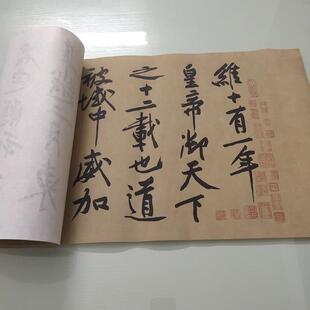 維十有一年
皇帝御天下
之十二載也道
被域中威加